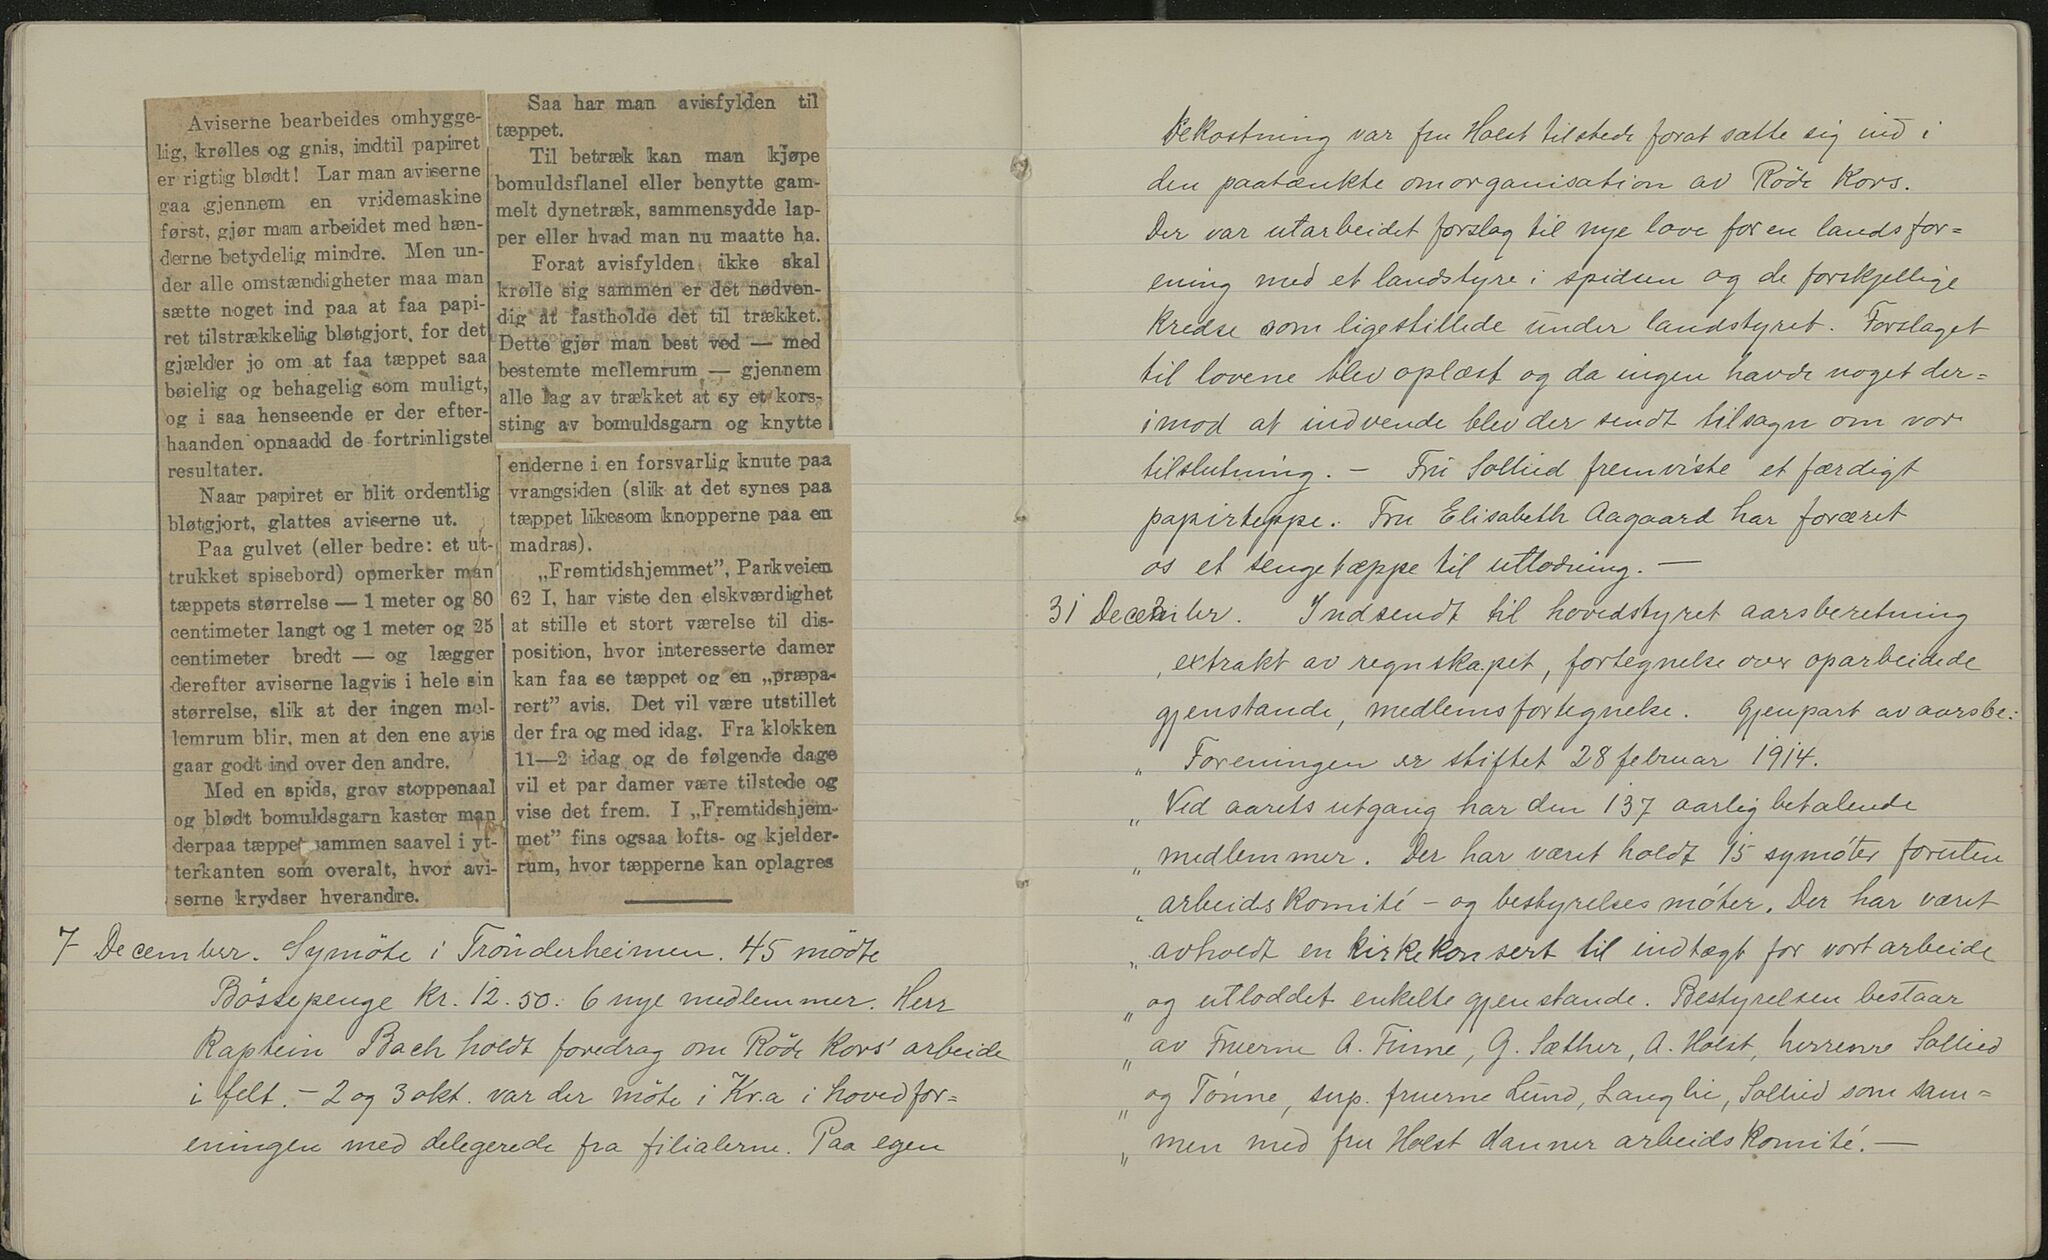 Aviserne bearbeides omhygge-
lig, krølles og gnis, indtil papiret
er rigtig blødt! Lar man aviserne
gaa gjennem en vridemaskine
først, gjør man arbeidet med hæn-
derne betydelig mindre. Men un-
der alle omstændigheter maa man
sætte noget ind paa at faa papi-
ret tilstrækkelig bløtgjort, for det
gjælder jo om at faa tæppet saa
bøielig og behagelig som muligt,
og i saa henseende er der efter-
haanden opnaadd de fortrinligste
resultater.
Naar papiret er blit ordentlig
bløtgjort, glattes aviserne ut.
Paa gulvet (eller bedre: et ut-
trukket spisebord) opmerker man
tæppets størrelse — 1 meter og 80
centimeter langt og 1 meter og 25
centimeter bredt — og lægger
derefter aviserne lagvis i hele sin
størrelse, slik at der ingen mel-
lemrum blir, men at den ene avis
gaar godt ind over den andre.
Med en spids, grov stoppenaal
og blødt bomuldsgarn kaster man
derpaa tæppet sammen saavel i yt-
terkanten som overalt, hvor avi-
serne krydser hverandre.
Saa har man avisfylden til
tæppet.
Til betræk kan man kjøpe
bomuldsflanel eller benytte gam-
melt dynetræk, sammensydde lap-
per eller hvad man nu maatte ha.
Forat avisfylden ikke skal
krølle sig sammen er det nødven-
dig at fastholde det til trækket.
Dette gjør man best ved — med
bestemte mellemrum — gjennem
alle lag av trækket at sy et kors-
sting av bomuldsgarn og knytte
enderne i en forsvarlig knute paa
vrangsiden (slik at det synes paa
tæppet likesom knopperne paa en
madras).
„Fremtidshjemmet”, Parkveien
62 I, har viste den elskværdighet
at stille et stort værelse til dis-
position, hvor interesserte damer
kan faa se tæppet og en „præpa-
rert” avis. Det vil være utstillet
der fra og med idag. Fra klokken
11—2 idag og de følgende dage
vil et par damer være tilstede og
vise det frem. I „Fremtidshjem-
met” fins ogsaa lofts- og kjelder-
rum, hvor tæpperne kan oplagres
7 December. Symöte i Trönderheimen. 45 mödte
Bössepenge Kr. 12.50. 6 nye medlemmer. Herr
Kaptein Bach holdt foredrag om Röde Kors' arbeide
i felt. – 2 og 3 okt. var der möte i Kr.a i hovedfor=
eningen med delegerede fra filialerne. Paa egen
bekostning var fru Holst tilstede forat sætte sig ind i
den paatænkte omorganisation av Röde Kors.
Der var utarbeidet forslag til nye love for en landsfor=
ening med et landstyre i spidsen og de forskjellige
Kredse som ligestillede under landstyret. Forslaget
til lovene blev oplæst og da ingen havde noget der=
imod at indvende blev der sendt tilsagn om vor
tilslutning. – Fru Sollied fremviste et færdigt
papirteppe. Fru Elisabeth Aagaard har foræret
os et sengetæppe til utlodning. –
31 December. Indsendt til hovedstyret aarsberetning
, extrakt av regnskapet, fortegnelse over oparbeidede
gjenstande, medlemsfortegnelse. Gjenpart av aarsbe:
„ Foreningen er stiftet 28 februar 1914.
„ Ved aarets utgang har den 137 aarlig betalende
„ medlemmer. Der har været holdt 15 symöter foruten
„ arbeidskomité – og bestyrelsesmöter. Der har været
„ avholdt en kirkekonsert til indtægt for vort arbeide
„ og utloddet enkelte gjenstande. Bestyrelsen bestaar
„ av Fruerne A. Finne, G. Sæther, A. Holst, herrerne Sollied
„ og Tönne, sup. fruerne Lund, Langlie, Sollied som sam=
„ men med fru Holst danner arbeidskomité. –